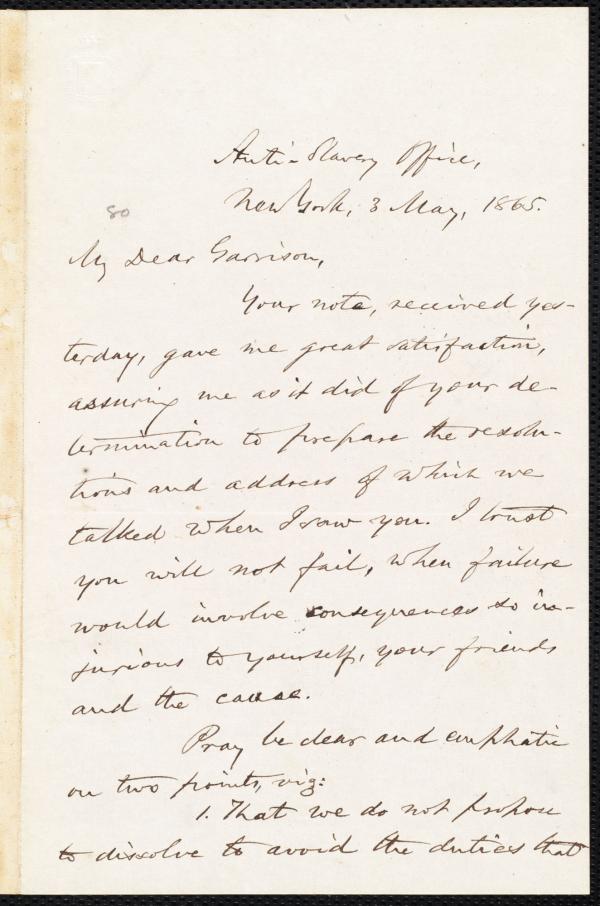 Anti-Slavery Office,
New York, 3 May, 1865.
80
My Dear Garrison,
Your note, received yes-
terday, gave me great satisfaction,
assuring me as it did of your de-
termination to prepare the resolu-
tions and address of which we
talked when I saw you. I trust
you will not fail, when failure
would involve consequences so in-
jurious to yourself, your friends
and the cause.
Pray be clear and emphatic
on two points, viz:
1. That we do not propose
to dissolve to avoid the duties that